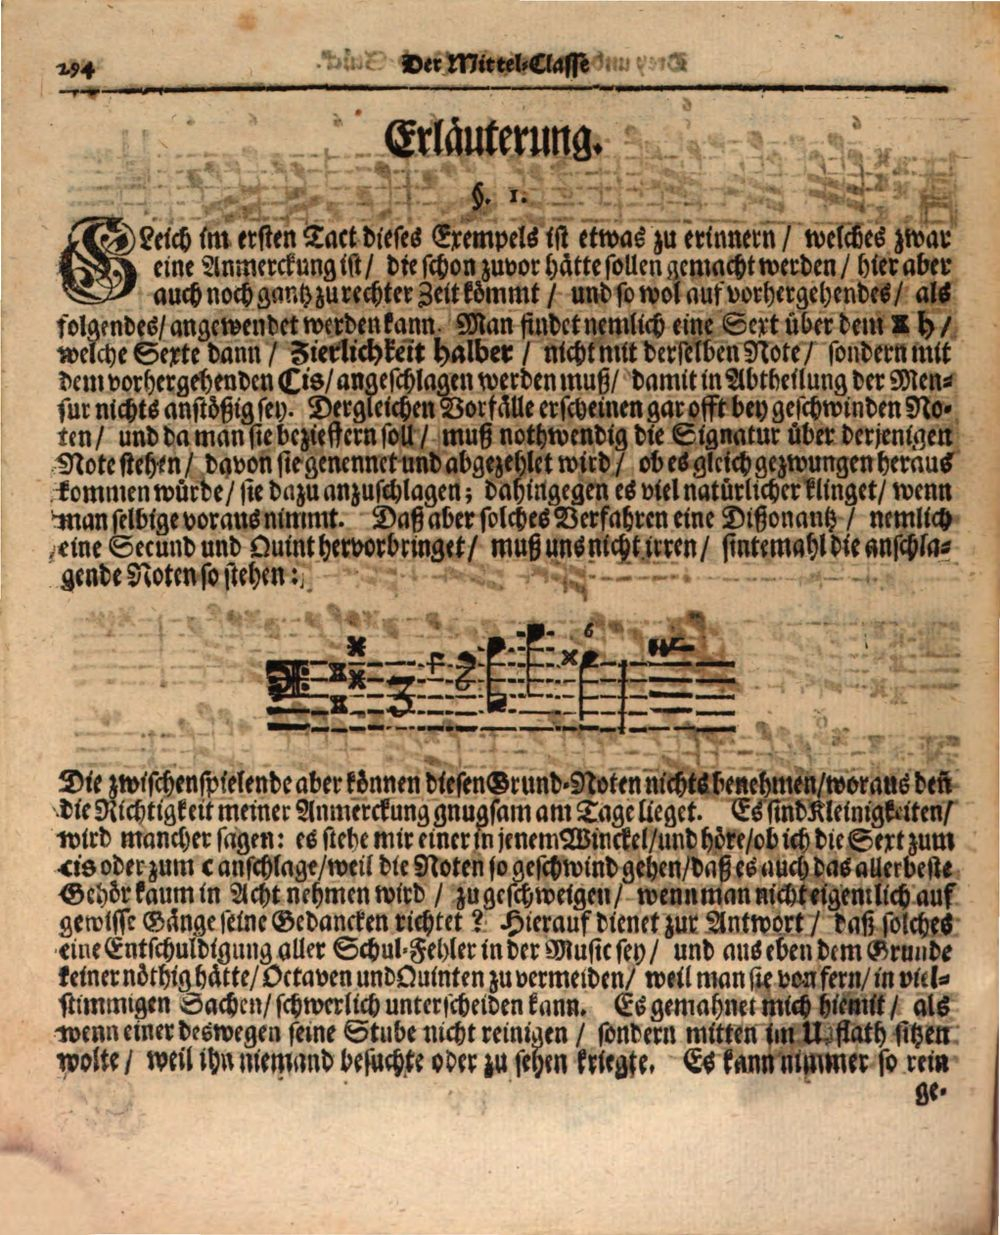 294
Der Mittel-Classe
Erläuterung.
§. 1.
GLeich im ersten Tact dieses Exempels ist etwas zu erinnern / welches zwar
eine Anmerckung ist / die schon zuvor hätte sollen gemacht werden / hier aber
auch noch gantz zu rechter Zeit kömmt / und so wol auf vorhergehendes / als
folgendes / angewendet werden kann. Man findet nemlich eine Sext über dem x h /
welche Sexte dann / Zierlichkeit halber / nicht mit derselben Note / sondern mit
dem vorhergehenden Cis / angeschlagen werden muß / damit in Abtheilung der Men-
sur nichts anstößig sey. Dergleichen Vorfälle erscheinen gar offt bey geschwinden No-
ten / und da man sie bezieffern soll / muß nothwendig die Signatur über derjenigen
Note stehen / davon sie genennet und abgezehlet wird / ob es gleich gezwungen heraus
kommen würde / sie dazu anzuschlagen; dahingegen es viel natürlicher klinget / wenn
man selbige voraus nimmt. Daß aber solches Verfahren eine Dissonantz / nemlich
eine Secund und Quint hervorbringet / muß uns nicht irren / sintemahl die anschla-
gende Noten so stehen:
6
Die zwischenspielende aber können diesen Grund-Noten nichts benehmen / woraus deñ
die Richtigkeit meiner Anmerckung gnugsam am Tage lieget. Es sind Kleinigkeiten /
wird mancher sagen: es stehe mir einer in jenem Winckel / und höre / ob ich die Sext zum
cis oder zum c anschlage / weil die Noten so geschwind gehen / daß es auch das allerbeste
Gehör kaum in Acht nehmen wird / zu geschweigen / wenn man nicht eigentlich auf
gewisse Gänge seine Gedancken richtet? Hierauf dienet zur Antwort / daß solches
eine Entschuldigung aller Schul-Fehler in der Music sey / und aus eben dem Grunde
keiner nöthig hätte / Octaven und Quinten zu vermeiden / weil man sie von fern / in viel-
stimmigen Sachen / schwerlich unterscheiden kann. Es gemahnet mich hiemit / als
wenn einer deswegen seine Stube nicht reinigen / sondern mitten im Unflath sitzen
wolte / weil ihn niemand besuchte oder zu sehen kriegte. Es kann nimmer so rein
ge-